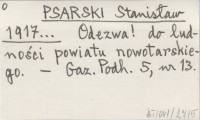 PSARSKI Stanisław
1917... Odezwa! do lud-
ności powiatu nowotarskie-
go. – Gaz. Podh. 5, nr 13.